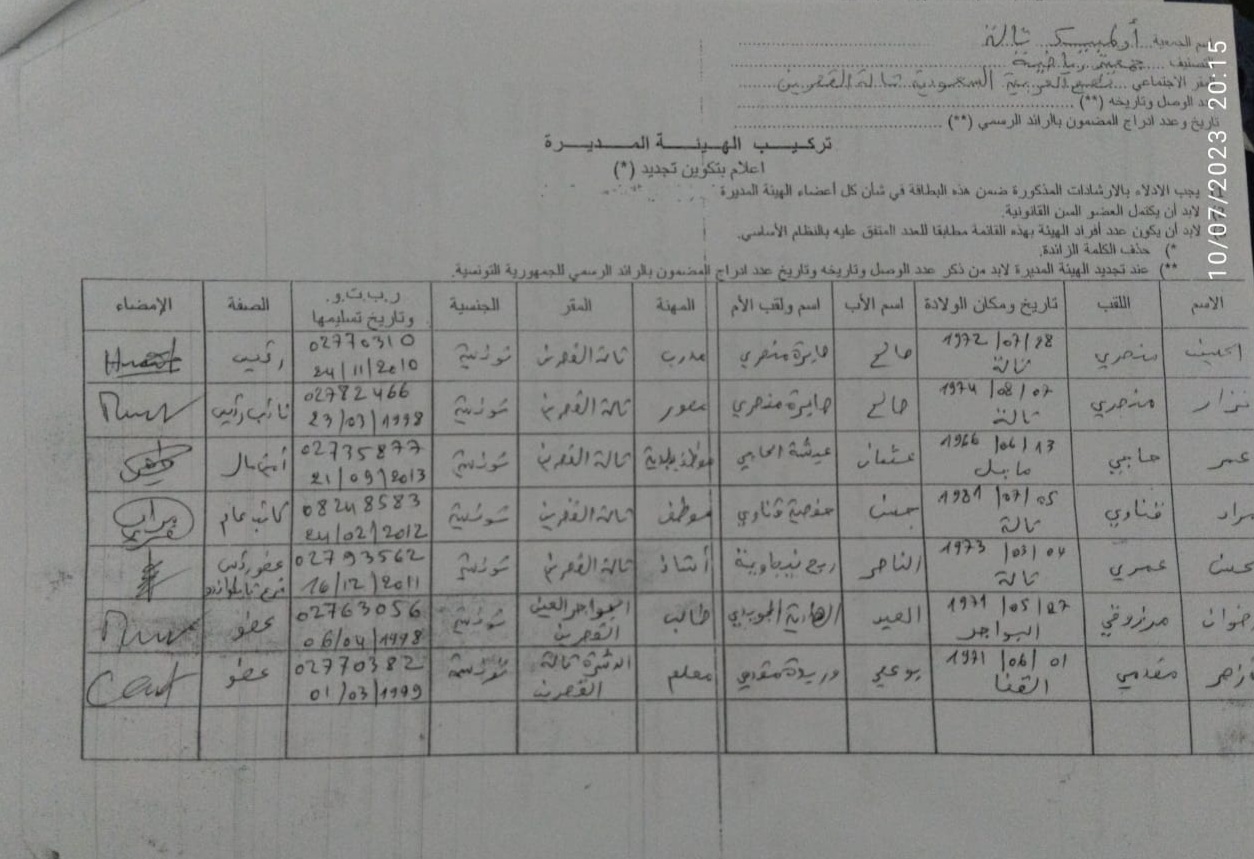 اسم الجمعية أولمبيك تالة
التصنيف جمعية رياضية
المقر الاجتماعي نهج العربية السعودية تالة القصرين
عدد الوصل وتاريخه (**)
تاريخ وعدد ادراج المضمون بالرائد الرسمي (**)
تركيب الهيئة المديرة
اعلام بتكوين تجديد (*)
يجب الادلاء بالارشادات المذكورة ضمن هذه البطاقة في شأن كل أعضاء الهيئة المديرة
لابد أن يكتمل العضو السن القانونية.
لابد أن يكون عدد أفراد الهيئة بهذه القائمة مطابقا للعدد المتفق عليه بالنظام الأساسي.
*) حذف الكلمة الزائدة.
**) عند تجديد الهيئة المديرة لابد من ذكر عدد الوصل وتاريخه وتاريخ عدد ادراج المضمون بالرائد الرسمي للجمهورية التونسية.
الاسم اللقب تاريخ ومكان الولادة اسم الأب اسم ولقب الأم المهنة المقر الجنسية ر.ب.ت.و. وتاريخ تسليمها الصفة الإمضاء
منصري 1972/07/28 تالة صالح صابرة منصري مدرب تالة القصرين تونسية 02770310 24/11/2010 رئيس
نزار منصري 1974/08/07 تالة صالح صابرة منصري مصور تالة القصرين تونسية 02782466 23/03/1998 نائب رئيس
عمر حاجبي 1966/06/13 عثمان عيشة موظف بلدية تالة القصرين تونسية 02735877 21/09/2013 أمين مال
مراد قناوي 1981/07/05 تالة حفصية قناوي موظف تالة القصرين تونسية 08248583 24/02/2012 كاتب عام
عمري 1973/03/04 تالة الناصر ربح أستاذ تالة القصرين تونسية 02793562 16/12/2011
رضوان مرزوقي 1971/05/27 البواجر العيد الهادية طالب البواجر العيون القصرين تونسية 02763056 06/04/1998 عضو
لزهر مقدمي 1971/06/01 القنا بوعلي وريدة مقدمي معلم الدشرة تالة القصرين تونسية 02770382 01/03/1999 عضو
10/07/2023 20:15